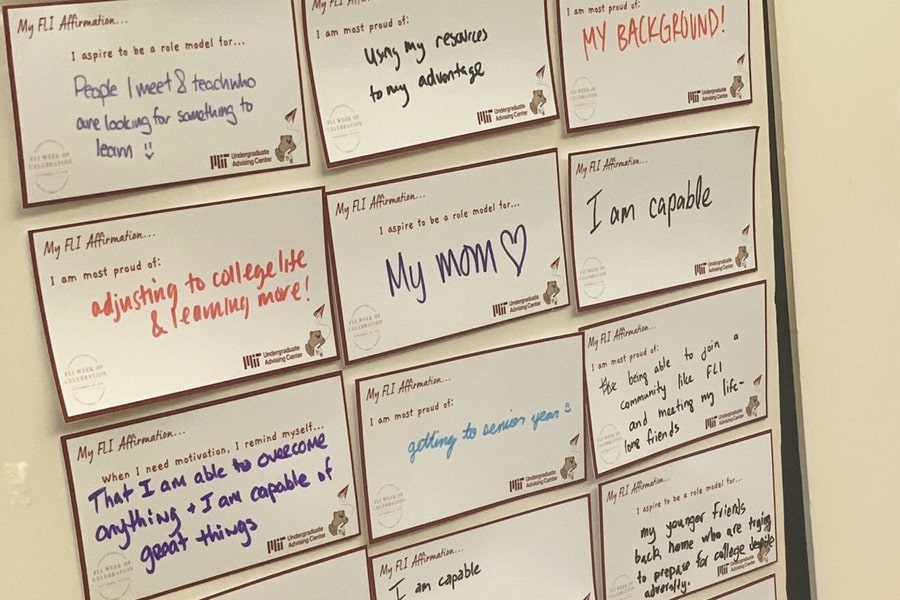 My FLI Affirmation...
I aspire to be a role model for...
People I meet & teach who
are looking for something to
learn :)
FLI WEEK OF
CELEBRATION
MIT Undergraduate
Advising Center
I am most proud of:
Using my resources
to my advantage
MIT Undergraduate
Advising Center
I am most proud of:
MY BACKGROUND!
MIT Undergraduate
Advising Center
My FLI Affirmation...
I am most proud of:
adjusting to college life
& learning more!
FLI WEEK OF
CELEBRATION
MIT Undergraduate
Advising Center
My FLI Affirmation...
I aspire to be a role model for...
My mom ♡
FLI WEEK OF
CELEBRATION
MIT Undergraduate
Advising Center
My FLI Affirmation...
I am capable
MIT Undergraduate
Advising Center
My FLI Affirmation...
When I need motivation, I remind myself...
That I am able to overcome
anything + I am capable of
great things
FLI WEEK OF
CELEBRATION
MIT Undergraduate
Advising Center
My FLI Affirmation...
I am most proud of:
getting to senior year :)
FLI WEEK OF
CELEBRATION
MIT Undergraduate
Advising Center
My FLI Affirmation...
I am most proud of:
being able to join a
community like FLI
and meeting my life-
long friends
MIT Undergraduate
Advising Center
My FLI Affirmation...
I am capable
My FLI Affirmation...
I aspire to be a role model for...
my younger friends
back home who are trying
to prepare for college despite
adversity.
MIT Undergraduate